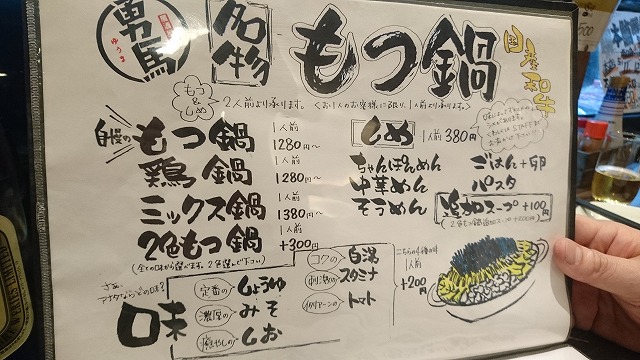 勇馬
ゆうま
名物
もつ鍋
国産和牛
もつ&しめ
2人前より承ります。<お1人のお客様に限り、1人前より承ります。>
自慢の
もつ鍋 1人前 1280円〜
鶏鍋 1人前 1280円〜
ミックス鍋 1人前 1380円〜
2色もつ鍋 1人前 +300円
(全ての味から選べます。2色選んで下さい)
しめ 1人前 380円
ちゃんぽんめん
中華めん
そうめん
ごはん+卵
パスタ
追加スープ +100円
(2色もつ鍋追加スープ+200円)
さぁ、
アナタならどの味?
味
定番の しょうゆ
濃厚の みそ
癒やしの しお
コクの 白湯
刺激の スタミナ
トマト
こちらの4種の味
1人前
+200円